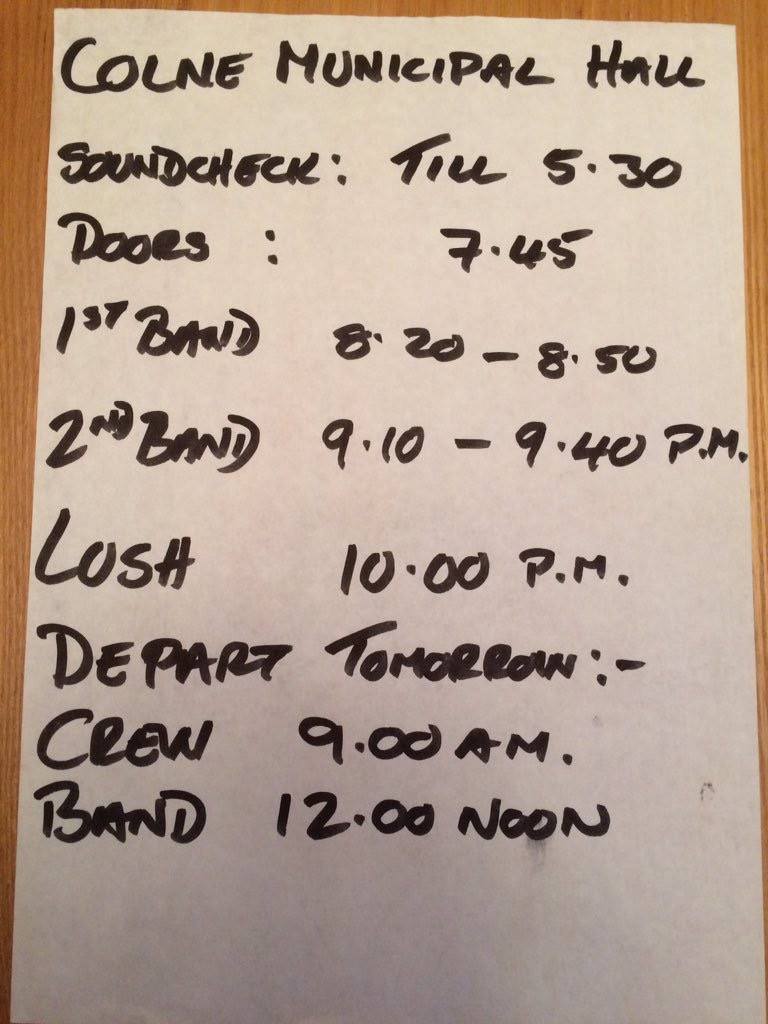 COLNE MUNICIPAL HALL
SOUNDCHECK: TILL 5.30
DOORS : 7.45
1ST BAND 8.20 - 8.50
2ND BAND 9.10 - 9.40 P.M.
LUSH 10.00 P.M.
DEPART TOMORROW:-
CREW 9.00 A.M.
BAND 12.00 NOON